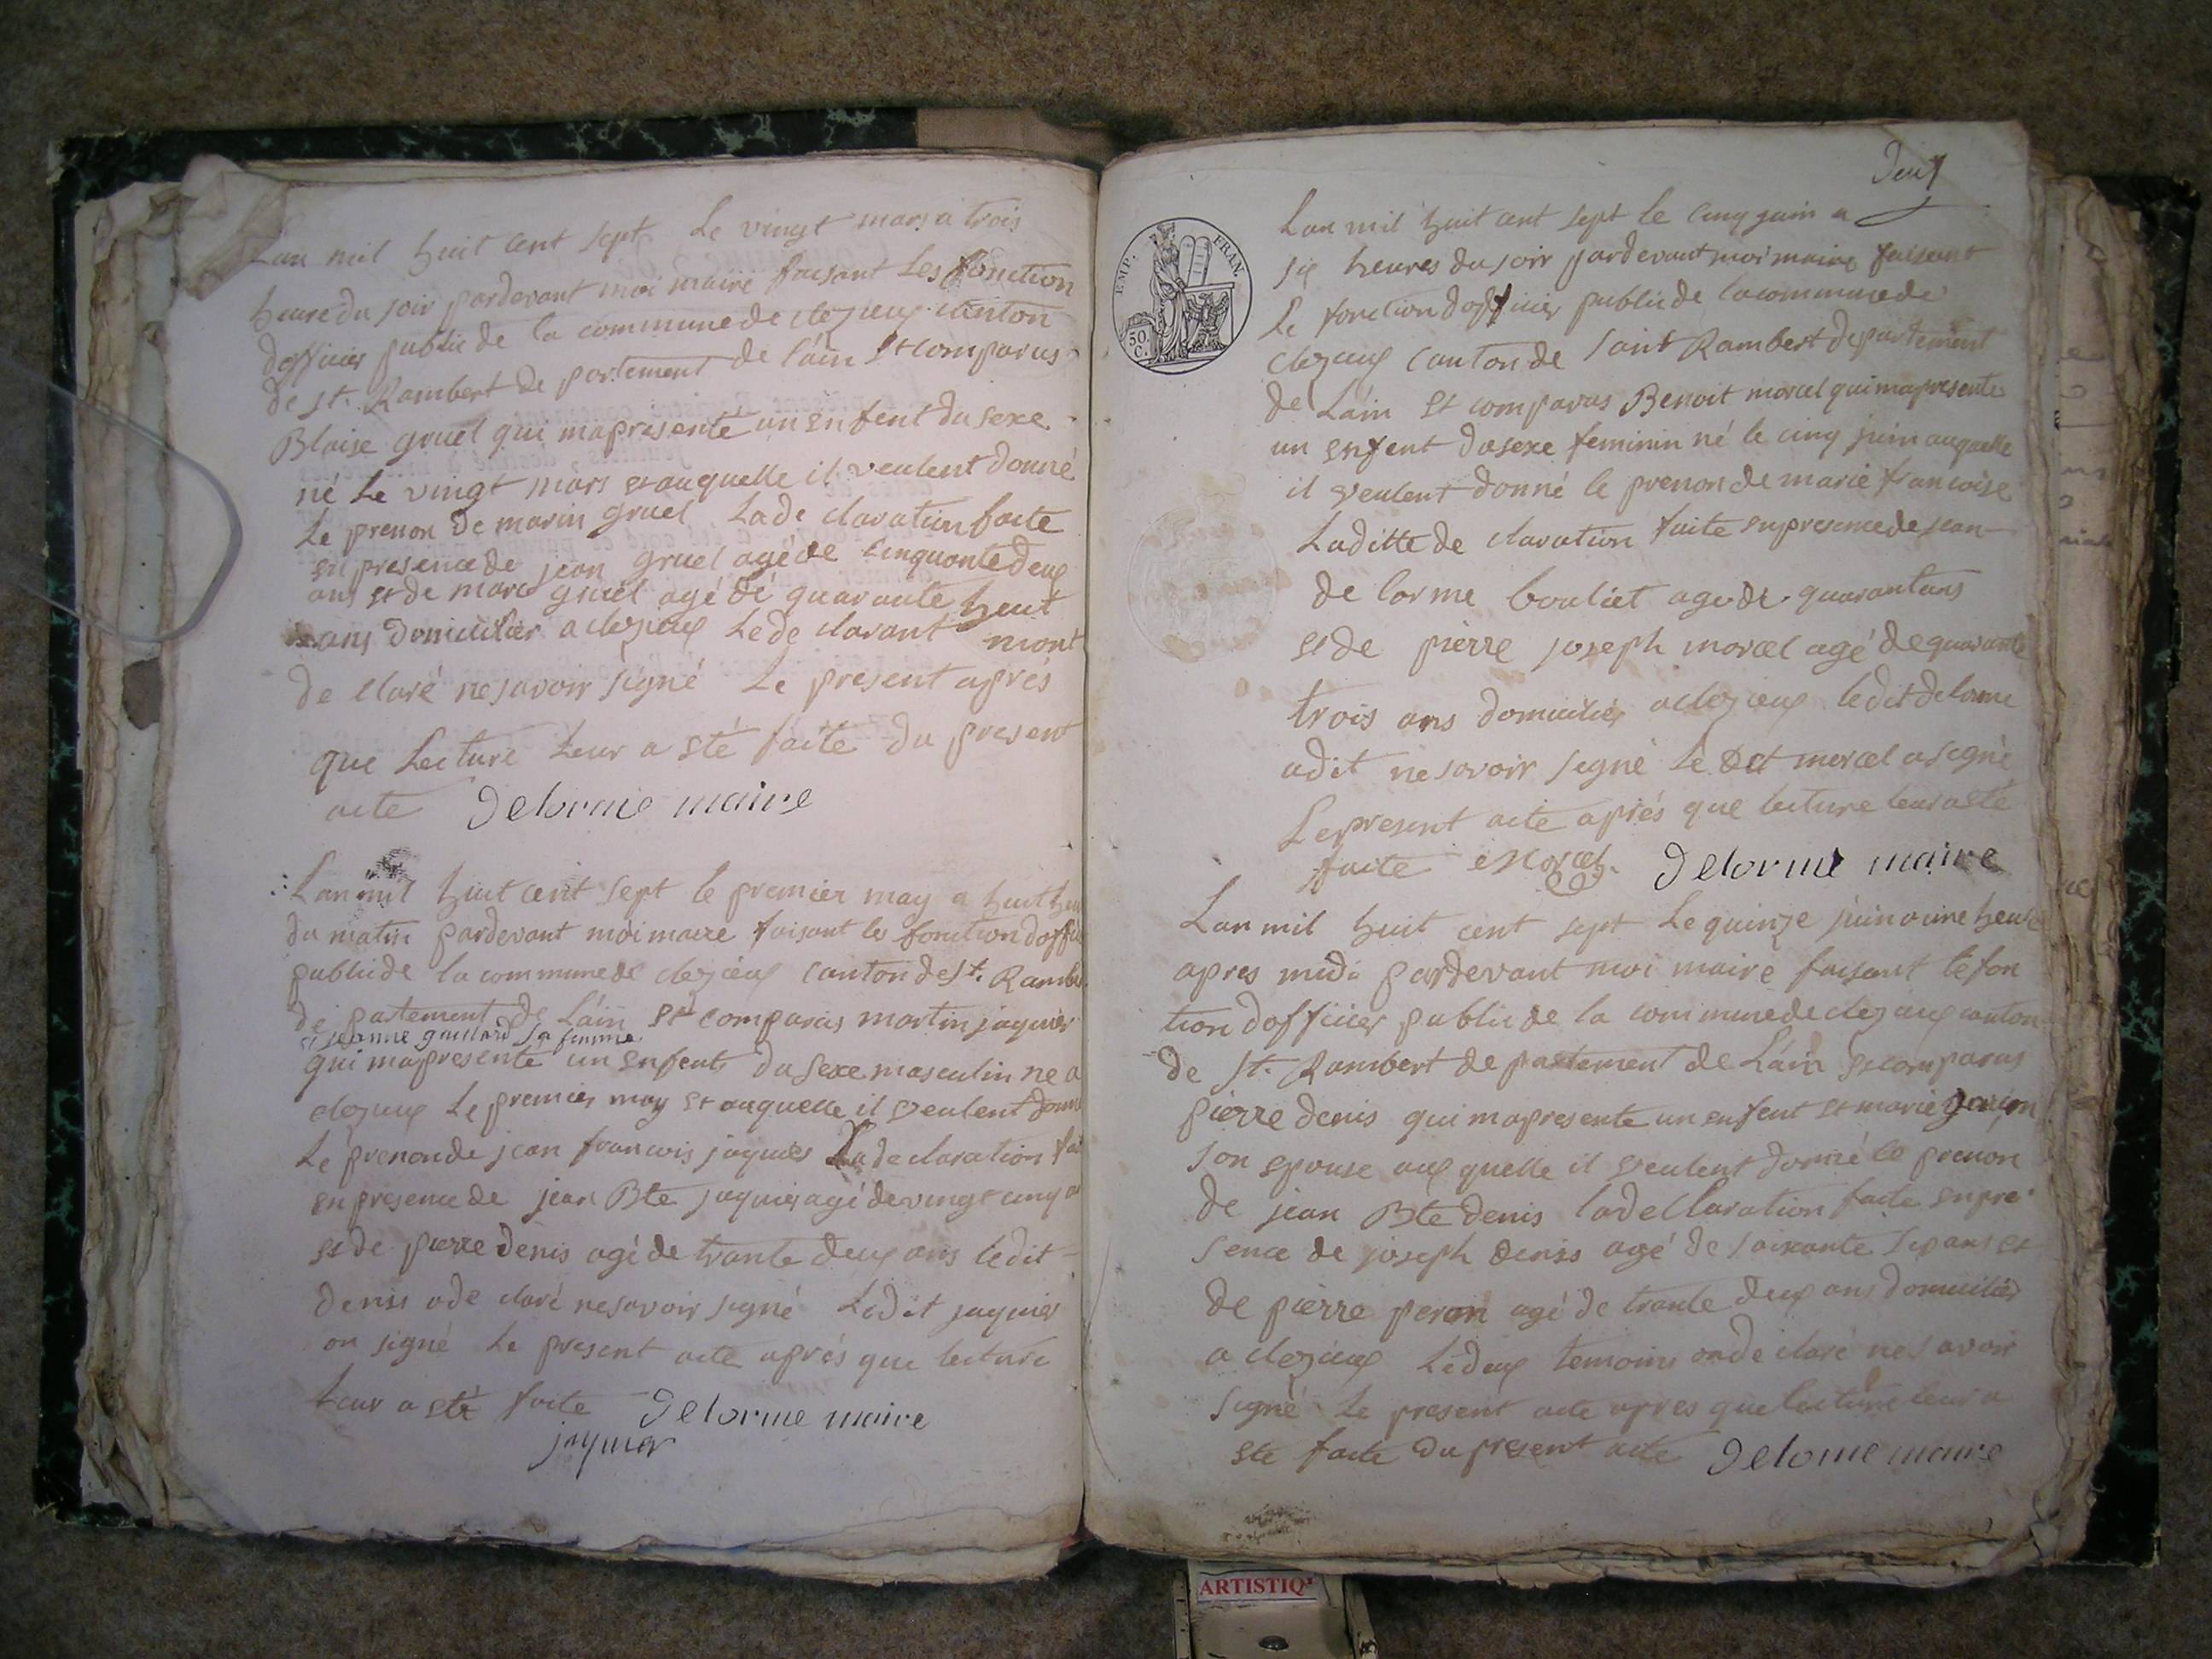 Lan mil huit cent sept Le vingt mars a trois
heure du soir pardevant moi maire faisant Les fonction
dofficier public de la commune de clezieux canton
de st. Rambert de partement de l'ain st comparus
Blaise gruel qui mapresenté un enfent du sexe
né Le vingt mars et auquelle il veulent donné
Le prenon de marin gruel La de claration faite
en presence de jean gruel agé de cinquante deux
ans et de marc gruel agé de quarante heut
ans domicilier a clezieux Le de clarant mont
de claré ne savoir signé Le present aprés
que Lecture Leur a été faite du present
acte Delorme maire
Lan mil huit cent sept le premier may a huit heu
du matin pardevant moi maire faisant les fonction doffic
public de la commune de clezieux canton de st. Rambe
de partement de L'ain st comparus martin jaquier
et jeanne gaulard sa femme
qui mapresente un enfent du sexe masculin ne a
clezieux Le premier may et auquelle il veulent donné
Le prenon de jean francois jaquier La de claration fai
en presence de jean Bte jaquier agé de vingt cinq an
et de pierre denis agé de trante deux ans ledit
denis a de claré ne savoir signé Ledit jaquier
on signé Le present acte aprés que lecture
Leur a eté faite Delorme maire
jaquier
Deux
Lan mil huit cent sept le cinq juin a
six heures du soir pardevant moi maire faisant
le fonction dofficier public de la commune de
clezieux canton de saint Rambert departement
de L'ain st comparus Benoit morcel qui mapresente
un enfent du sexe feminin né le cinq juin auquelle
il veulent donné le prenon de marie francoise
Laditte de claration faite en presence de jean
de lorme bouliet age de quarantans
et de pierre joseph morcel agé de quarante
trois ans domicilier a clezieux ledit delorme
a dit ne savoir signé Le dit morcel a signé
Le present acte aprés que lecture leur a eté
faite Morcel Delorme maire
EMP. FRAN.
50. C.
Lan mil huit cent sept Le quinze juin a une heure
apres midi pardevant moi maire faisant le fon
tion dofficier public de la commune de clezieux canton
de st. Rambert de partement de L'ain st comparus
pierre denis qui mapresente un enfent et marie
son epouse aux quelle il veulent donné le prenon
de jean Bte denis la de Claration faite en pre
sence de joseph denis agé de soixante six ans et
de pierre peron agé de trante deux ans domicilier
a clezieux Le deux temoins on de claré ne savoir
signé Le present acte apres que lecture leur a
ete faite du present acte Delorme maire
ARTISTIQ